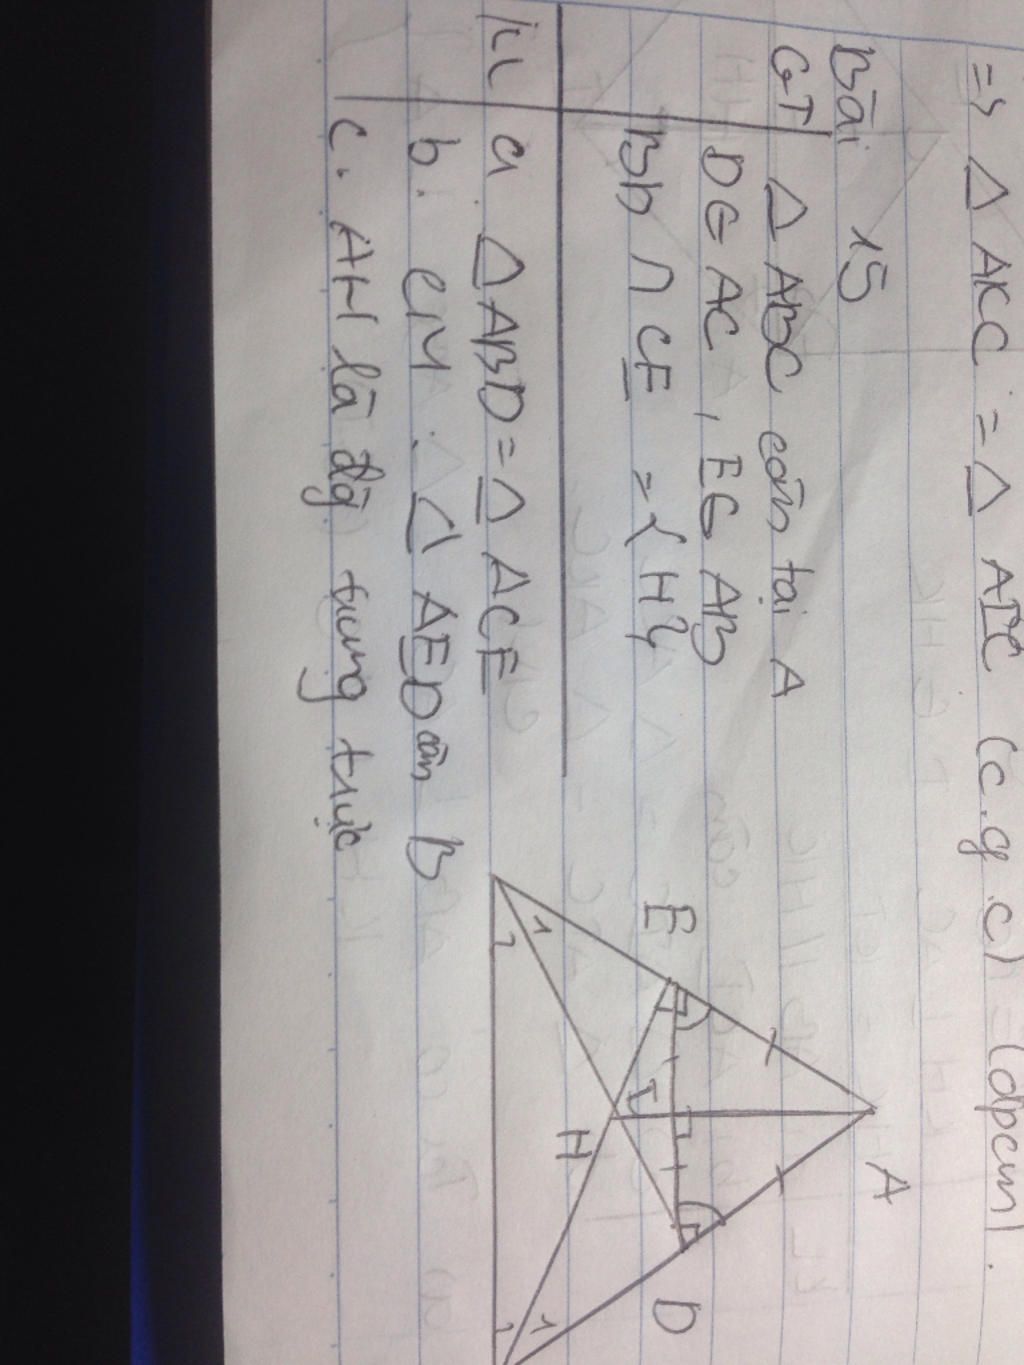 => △ AKC = △ AIC (c.g.c) => (đpcm).
Bài 15
GT △ ABC cân tại A
D ∈ AC, E ∈ AB
BD ∩ CE = {H}
KL a. △ABD = △ ACE
b. CM: △ AED cân
c. AH là đg trung trực
A
E
D
I
H
B
1
2
1
2